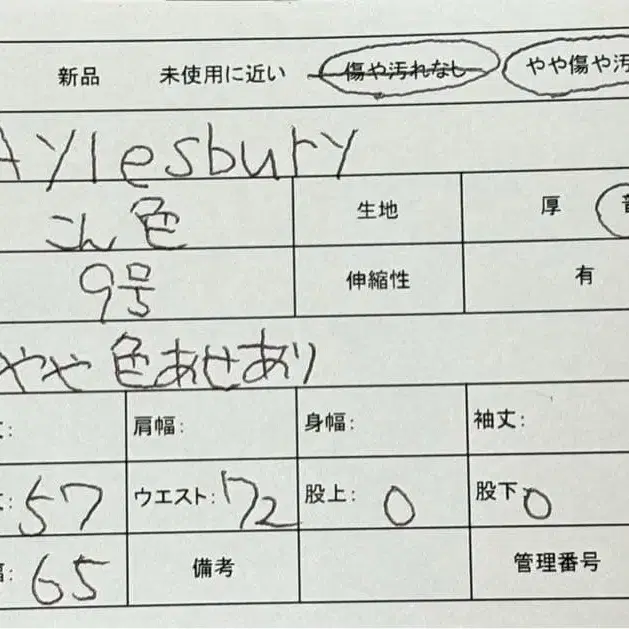 新品 未使用に近い 傷や汚れなし やや傷や汚
Aylesbury
こん色 生地 厚
9号 伸縮性 有
やや色あせあり
: 肩幅: 身幅: 袖丈:
: 57 ウエスト: 72 股上: 0 股下 0
: 65 備考 管理番号